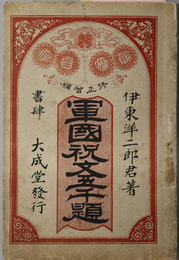 修正増補
伊東洋二郎君著
軍國祝文五千題
書肆 大成堂發行